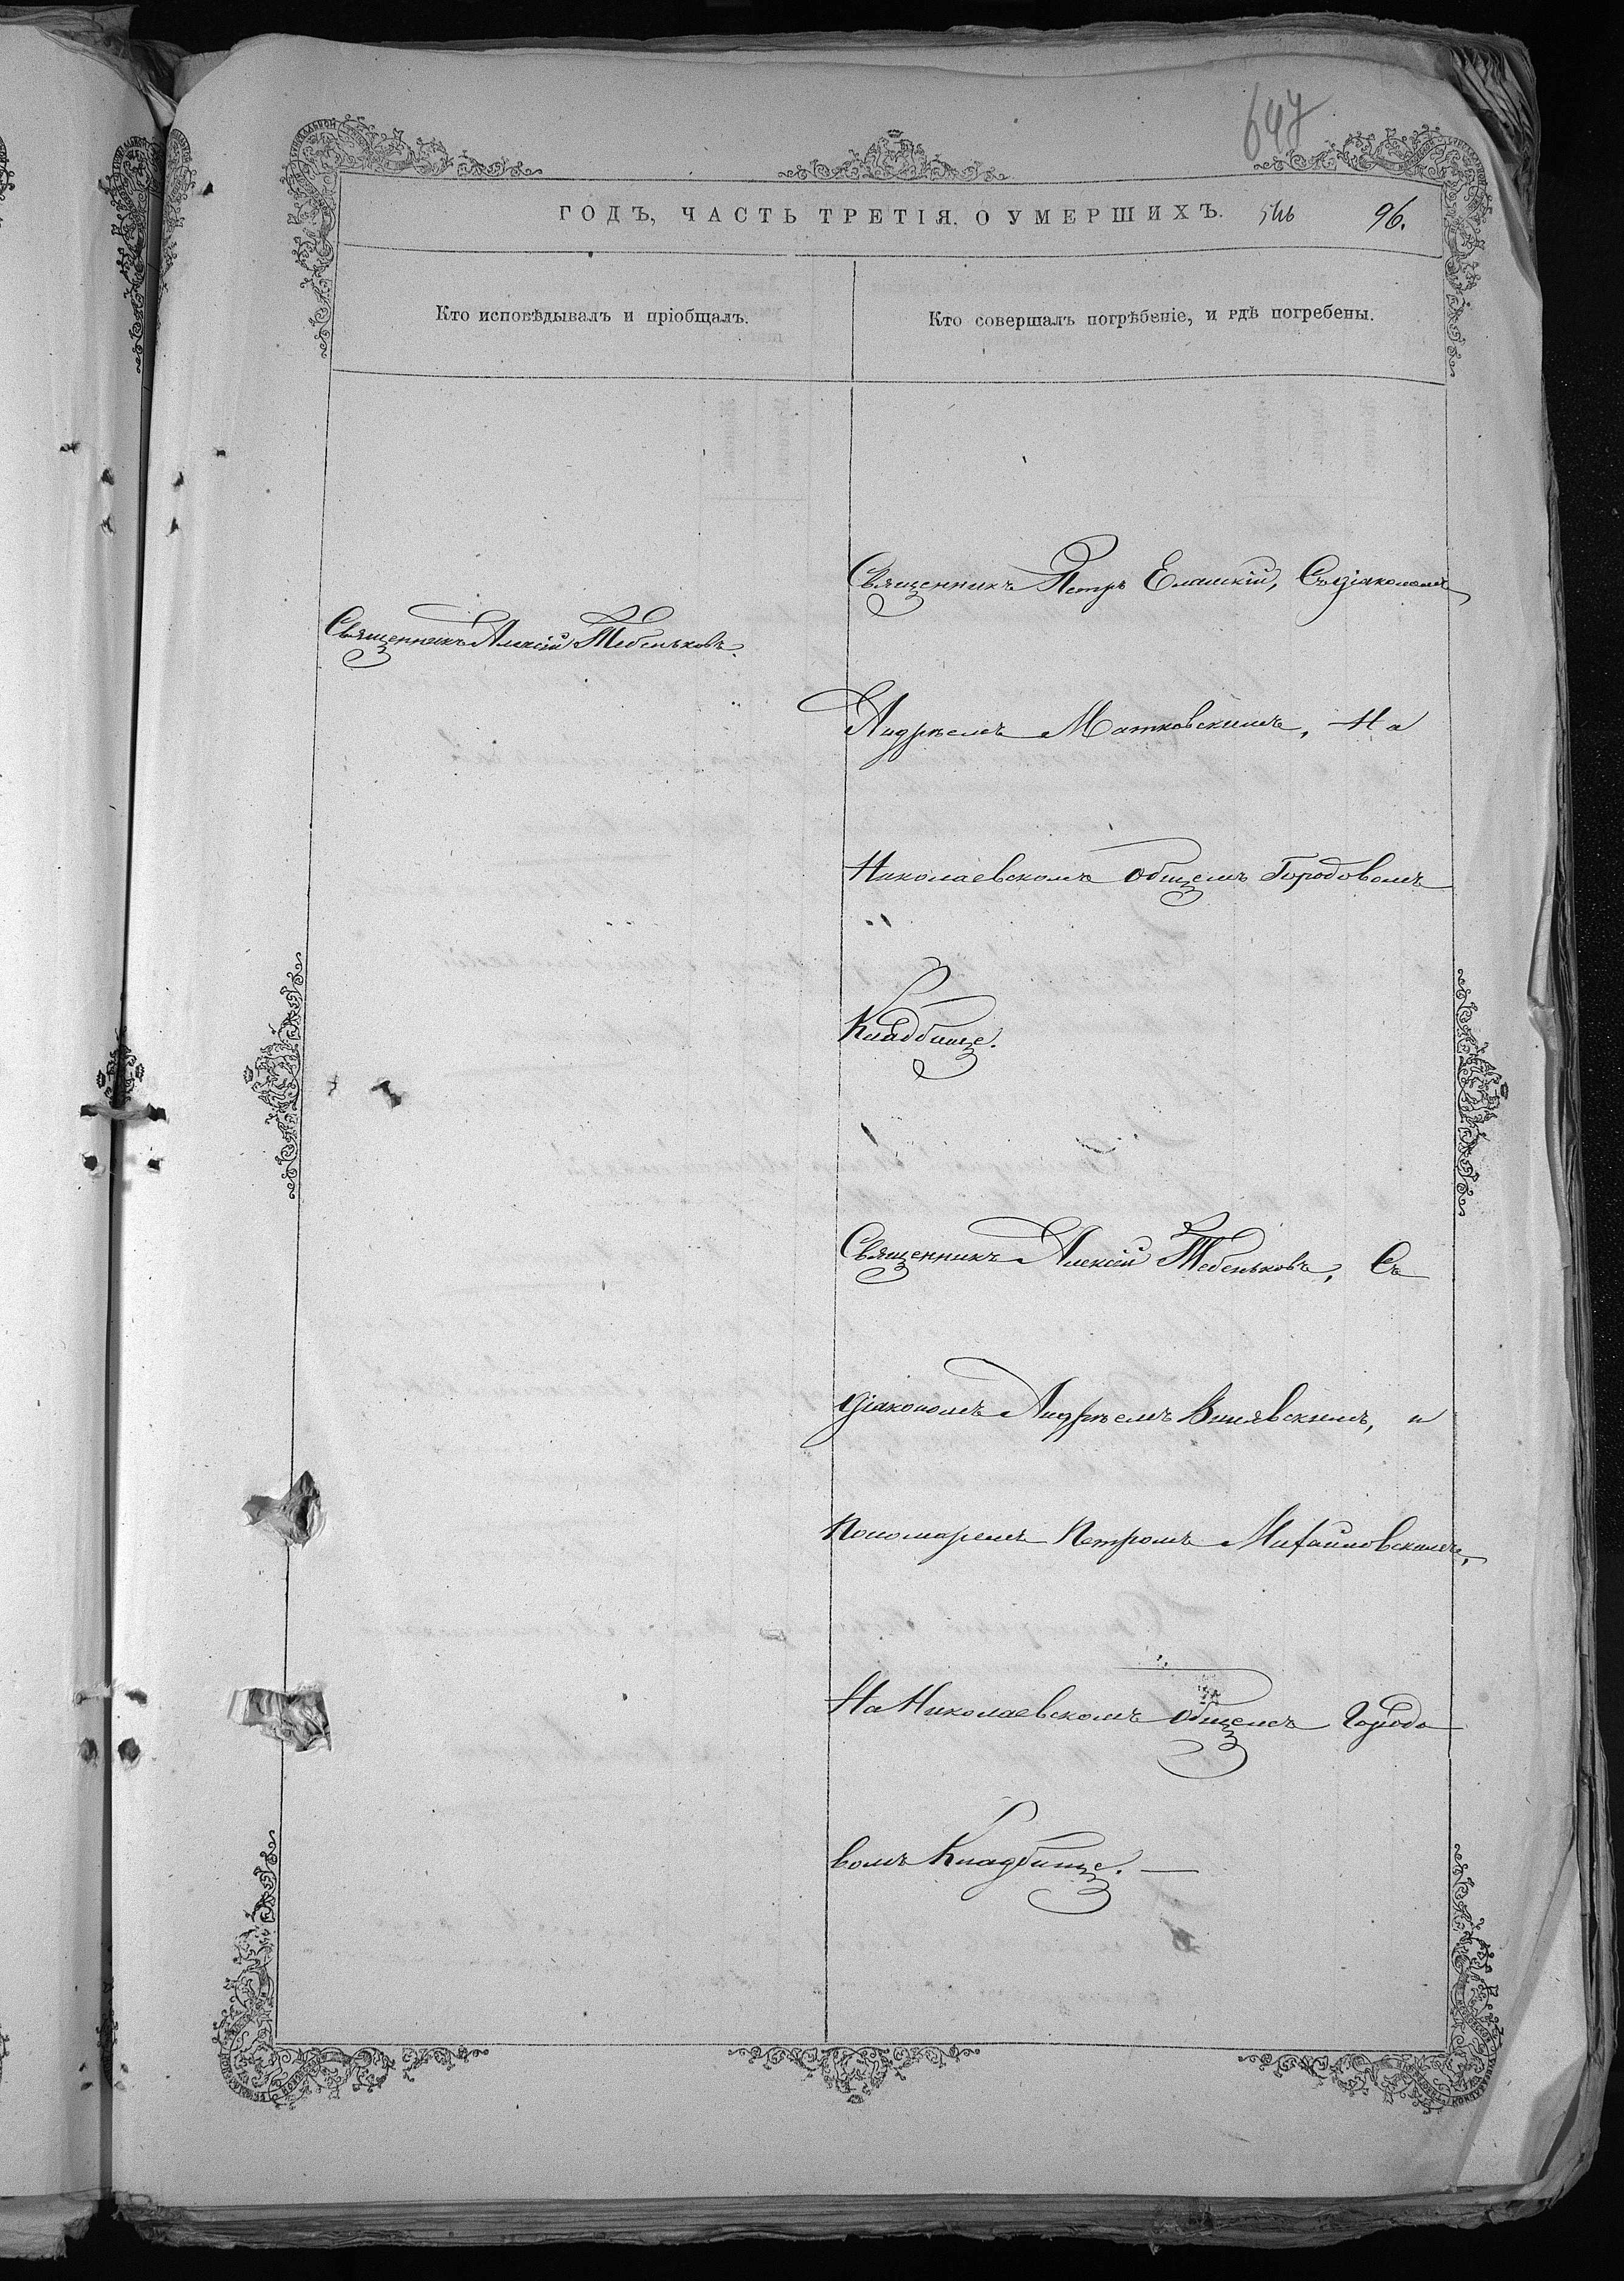 647
ГОДЪ, ЧАСТЬ ТРЕТІЯ. О УМЕРШИХЪ. 546 96.
Кто исповѣдывалъ и пріобщалъ.
Кто совершалъ погрѣбеніе, и гдѣ погребены.
Священникъ Алексій Тебеньковъ.
Священникъ Петръ Еланскій, Съ діакономъ
Андреемъ Матковскимъ, На
Николаевскомъ Общемъ Городовомъ
Кладбище.
Священникъ Алексій Тебеньковъ, Съ
діакономъ Андреемъ Винявскимъ, и
Пономаремъ Петромъ Михайловскимъ,
На Николаевскомъ Общемъ Городо
вомъ Кладбище. —